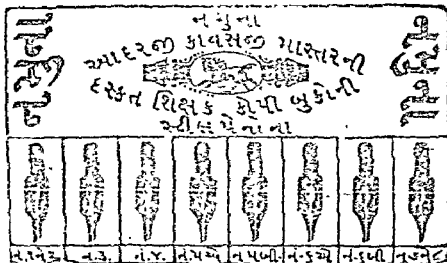 નમુના
નમુના
આદરજી કાવસજી માસ્તરની
દસ્કત શિક્ષક કૉપી બુકોની
સ્ટીલ પેનોના
ન.૧ને૨ ન.૩. નં.૪. નં.૫એ ન૫બી. નં-૬એ નં-૬બી